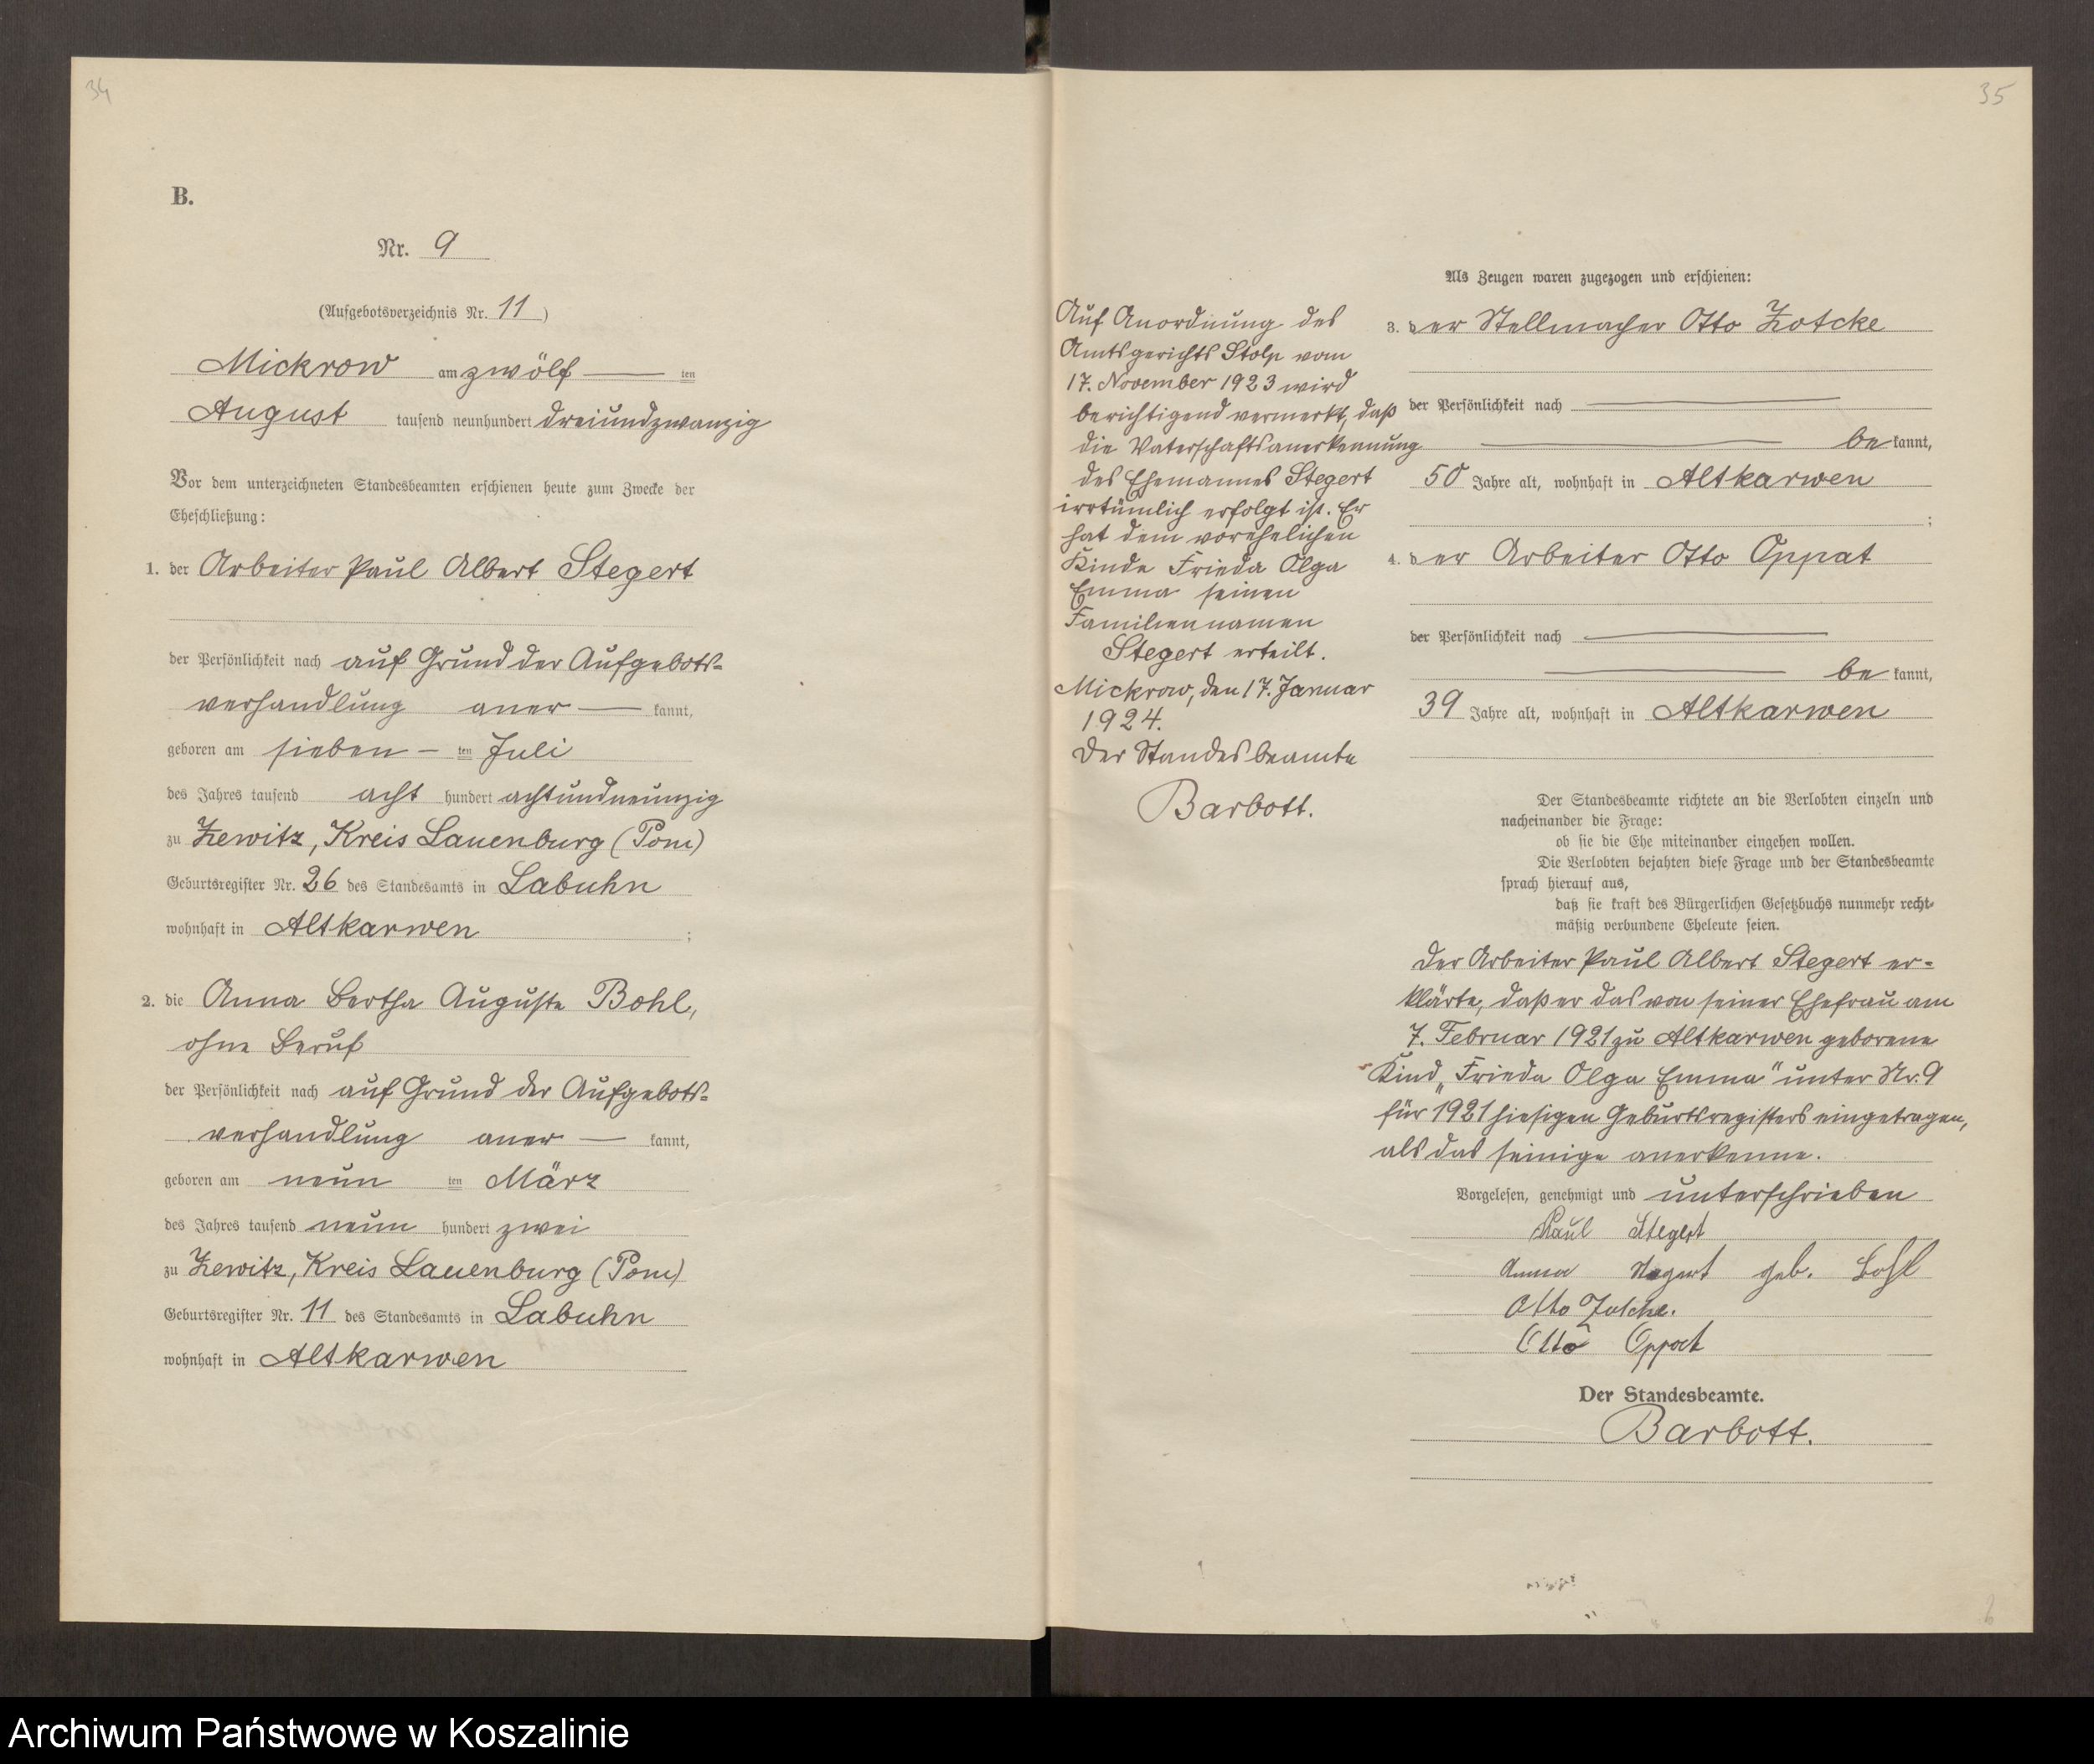 34
B.
Nr. 9
(Aufgebotsverzeichnis Nr. 11)
Mickrow am zwölf ten
August tausend neunhundert dreiundzwanzig
Vor dem unterzeichneten Standesbeamten erschienen heute zum Zwecke der
Eheschließung:
1. der Arbeiter Paul Albert Stegert
der Persönlichkeit nach auf Grund der Aufgebots=
verhandlung aner — kannt,
geboren am sieben – ten Juli
des Jahres tausend acht hundert achtundneunzig
zu Zewitz, Kreis Lauenburg (Pom)
Geburtsregister Nr. 26 des Standesamts in Labuhn
wohnhaft in Altkarwen ;
2. die Anna Bertha Auguste Bohl,
ohne Beruf
der Persönlichkeit nach auf Grund der Aufgebots=
verhandlung aner — kannt,
geboren am neun ten März
des Jahres tausend neun hundert zwei
zu Zewitz, Kreis Lauenburg (Pom)
Geburtsregister Nr. 11 des Standesamts in Labuhn
wohnhaft in Altkarwen
35
Auf Anordnung des
Amtsgerichts Stolp vom
17. November 1923 wird
berichtigend vermerkt, daß
die Vaterschaftsanerkennung
des Ehemannes Stegert
irrtümlich erfolgt ist. Er
hat dem vorehelichen
Kinde Frieda Olga
Emma seinen
Familiennamen
Stegert erteilt.
Mickrow, den 17. Januar
1924.
Der Standesbeamte
Barbott.
Als Zeugen waren zugezogen und erschienen:
3. der Stellmacher Otto Zotcke
der Persönlichkeit nach
be kannt,
50 Jahre alt, wohnhaft in Altkarwen
;
4. der Arbeiter Otto Oppat
der Persönlichkeit nach
be kannt,
39 Jahre alt, wohnhaft in Altkarwen
Der Standesbeamte richtete an die Verlobten einzeln und
nacheinander die Frage:
ob sie die Ehe miteinander eingehen wollen.
Die Verlobten bejahten diese Frage und der Standesbeamte
sprach hierauf aus,
daß sie kraft des Bürgerlichen Gesetzbuchs nunmehr recht=
mäßig verbundene Eheleute seien.
Der Arbeiter Paul Albert Stegert er=
klärte, daß er das von seiner Ehefrau am
7. Februar 1921 zu Altkarwen geborene
Kind „Frieda Olga Emma" unter Nr. 9
für 1921 hiesigen Geburtsregisters eingetragen,
als das seinige anerkenne.
Vorgelesen, genehmigt und unterschrieben
Paul Stegert
Anna Stegert geb. Bohl
Otto Zotcke.
Otto Oppat
Der Standesbeamte.
Barbott.
Archiwum Państwowe w Koszalinie